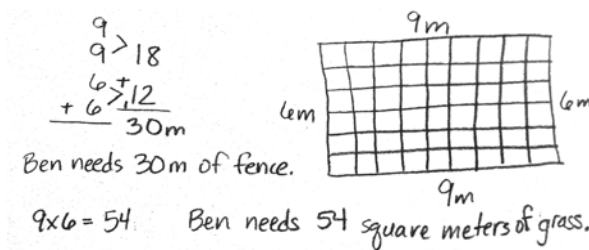 9
9 > 18
6 +
+ 6 > 12
30m
Ben needs 30m of fence.
9m
6m
6m
9m
9x6 = 54 Ben needs 54 square meters of grass.